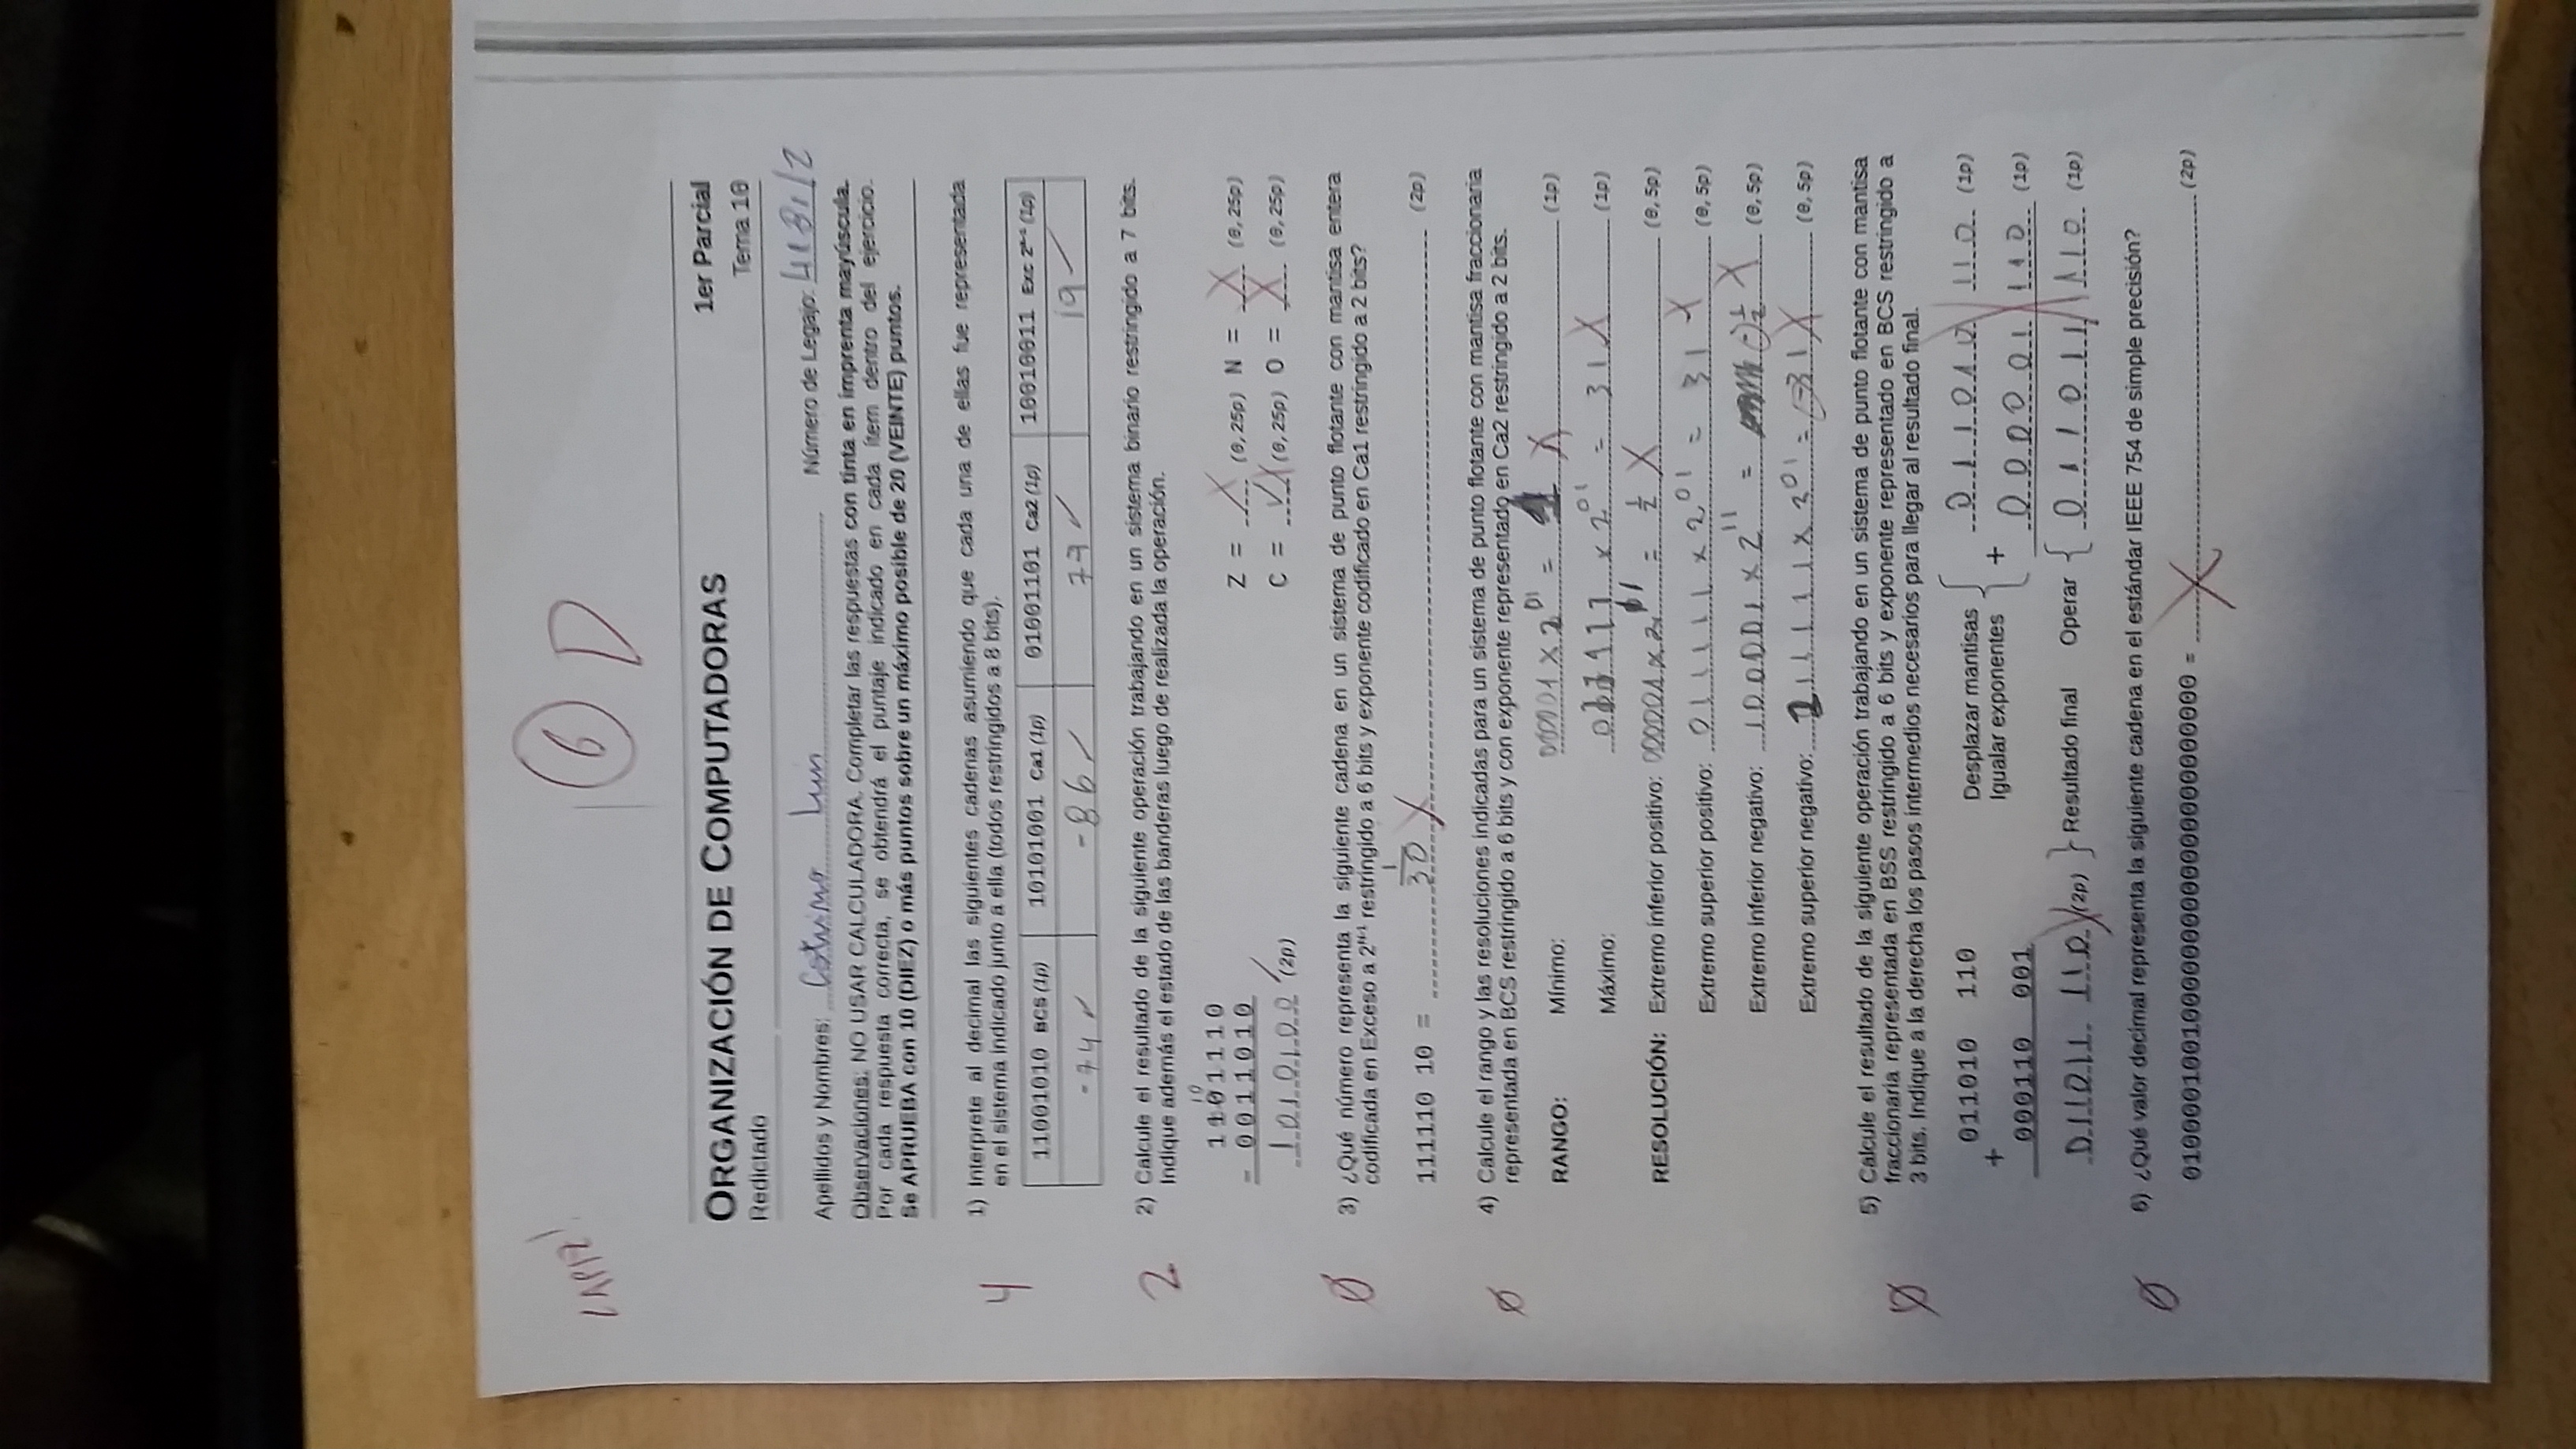 LAPIZ!
6 D
ORGANIZACIÓN DE COMPUTADORAS 1er Parcial
Redictado Tema 10
Apellidos y Nombres: Luis Número de Legajo:
Observaciones: NO USAR CALCULADORA. Completar las respuestas con tinta en imprenta mayúscula.
Por cada respuesta correcta, se obtendrá el puntaje indicado en cada ítem dentro del ejercicio.
Se APRUEBA con 10 (DIEZ) o más puntos sobre un máximo posible de 20 (VEINTE) puntos.
4 1) Interprete al decimal las siguientes cadenas asumiendo que cada una de ellas fue representada
en el sistema indicado junto a ella (todos restringidos a 8 bits).
11001010 BCS (1p) 10101001 Ca1 (1p) 01001101 Ca2 (1p) 10010011 Exc 2ᴺ⁻¹ (1p)
-74 ✓ -86 ✓ 77 ✓ 19 ✓
2 2) Calcule el resultado de la siguiente operación trabajando en un sistema binario restringido a 7 bits.
Indique además el estado de las banderas luego de realizada la operación.
10
1101110
- 0011010 Z = X (0,25p) N = X (0,25p)
1010100 (2p) C = X (0,25p) O = X (0,25p)
0 3) ¿Qué número representa la siguiente cadena en un sistema de punto flotante con mantisa entera
codificada en Exceso a 2ᴺ⁻¹ restringido a 6 bits y exponente codificado en Ca1 restringido a 2 bits?
111110 10 = 1/30 X (2p)
0 4) Calcule el rango y las resoluciones indicadas para un sistema de punto flotante con mantisa fraccionaria
representada en BCS restringido a 6 bits y con exponente representado en Ca2 restringido a 2 bits.
RANGO: Mínimo: 000001 x 2⁰¹ = 1 X (1p)
Máximo: 011111 x 2⁰¹ = 31 X (1p)
RESOLUCIÓN: Extremo inferior positivo: 000001 x 2¹¹ = 1/2 X (0,5p)
Extremo superior positivo: 011111 x 2⁰¹ = 31 X (0,5p)
Extremo inferior negativo: 100001 x 2¹¹ = -1/2 X (0,5p)
Extremo superior negativo: 111111 x 2⁰¹ = -31 X (0,5p)
0 5) Calcule el resultado de la siguiente operación trabajando en un sistema de punto flotante con mantisa
fraccionaria representada en BSS restringido a 6 bits y exponente representado en BCS restringido a
3 bits. Indique a la derecha los pasos intermedios necesarios para llegar al resultado final.
011010 110 Desplazar mantisas { 011010 110 (1p)
+ Igualar exponentes +
000110 001 000001 110 (1p)
011011 110 (2p) } Resultado final Operar { 011011 110 (1p)
0 6) ¿Qué valor decimal representa la siguiente cadena en el estándar IEEE 754 de simple precisión?
01000010010000000000000000000000 = X (2p)